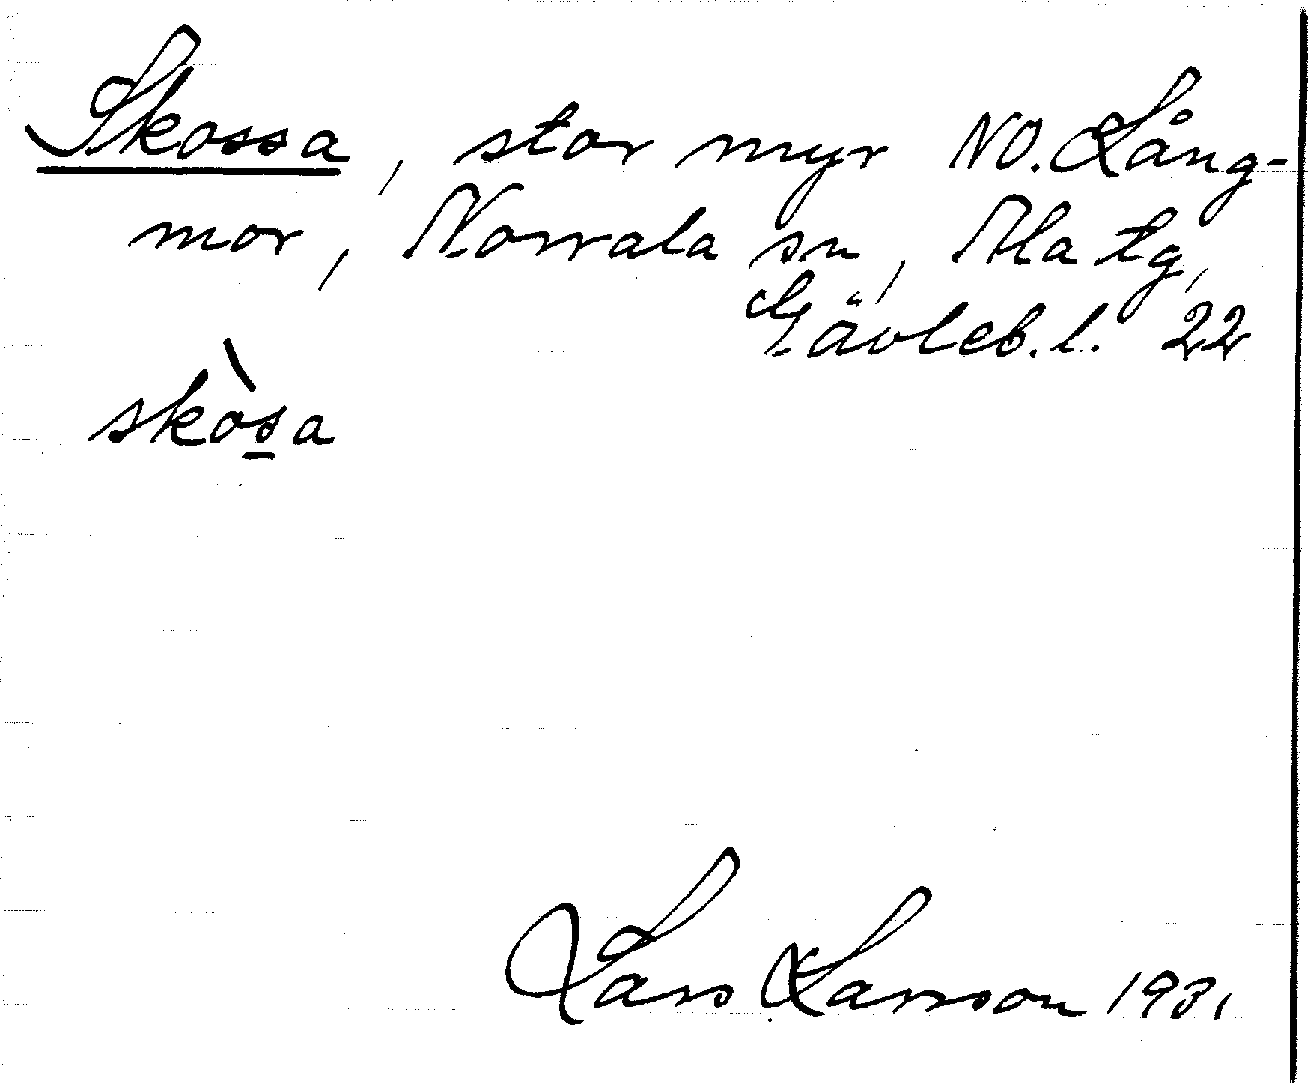 Skossa, stor myr NO. Lång-
mor, Norrala sn, Ala tg,
Gävleb. l. 22
skòs̲a
Lars Larsson 1931